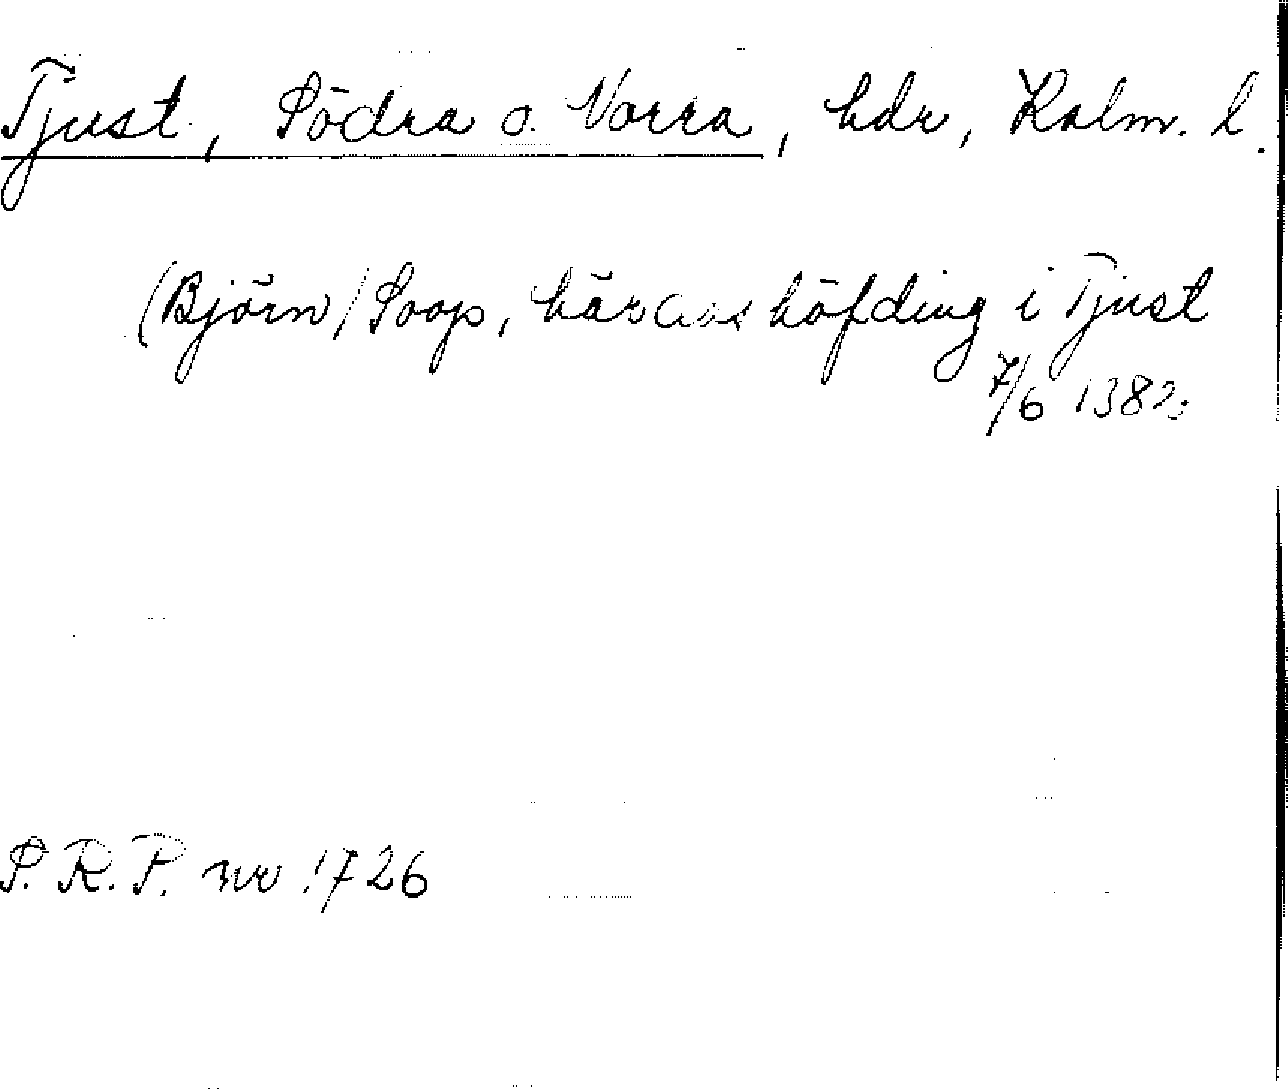 Tjust, Södra o. Norra, hdr, Kalm. l.
(Björn) Soop, häradshöfding i Tjust
7/6 1382.
S. R. P. nr 1726